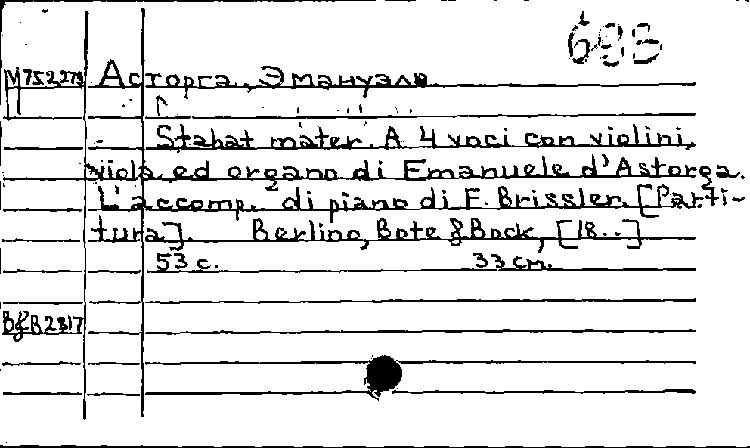 683
М752278 Асторга, Эмануэле
Stabat mater. A 4 voci con violini,
viola ed organo di Emanuele d'Astorga.
L'accomp. di piano di F. Brissler. [Parti-
tura]. Berlino, Bote & Bock, [18..]
53 с. 33 см.
B&B2817